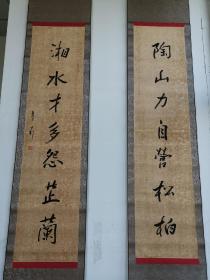 陶山力自營松柏
湘水才多怨芷蘭